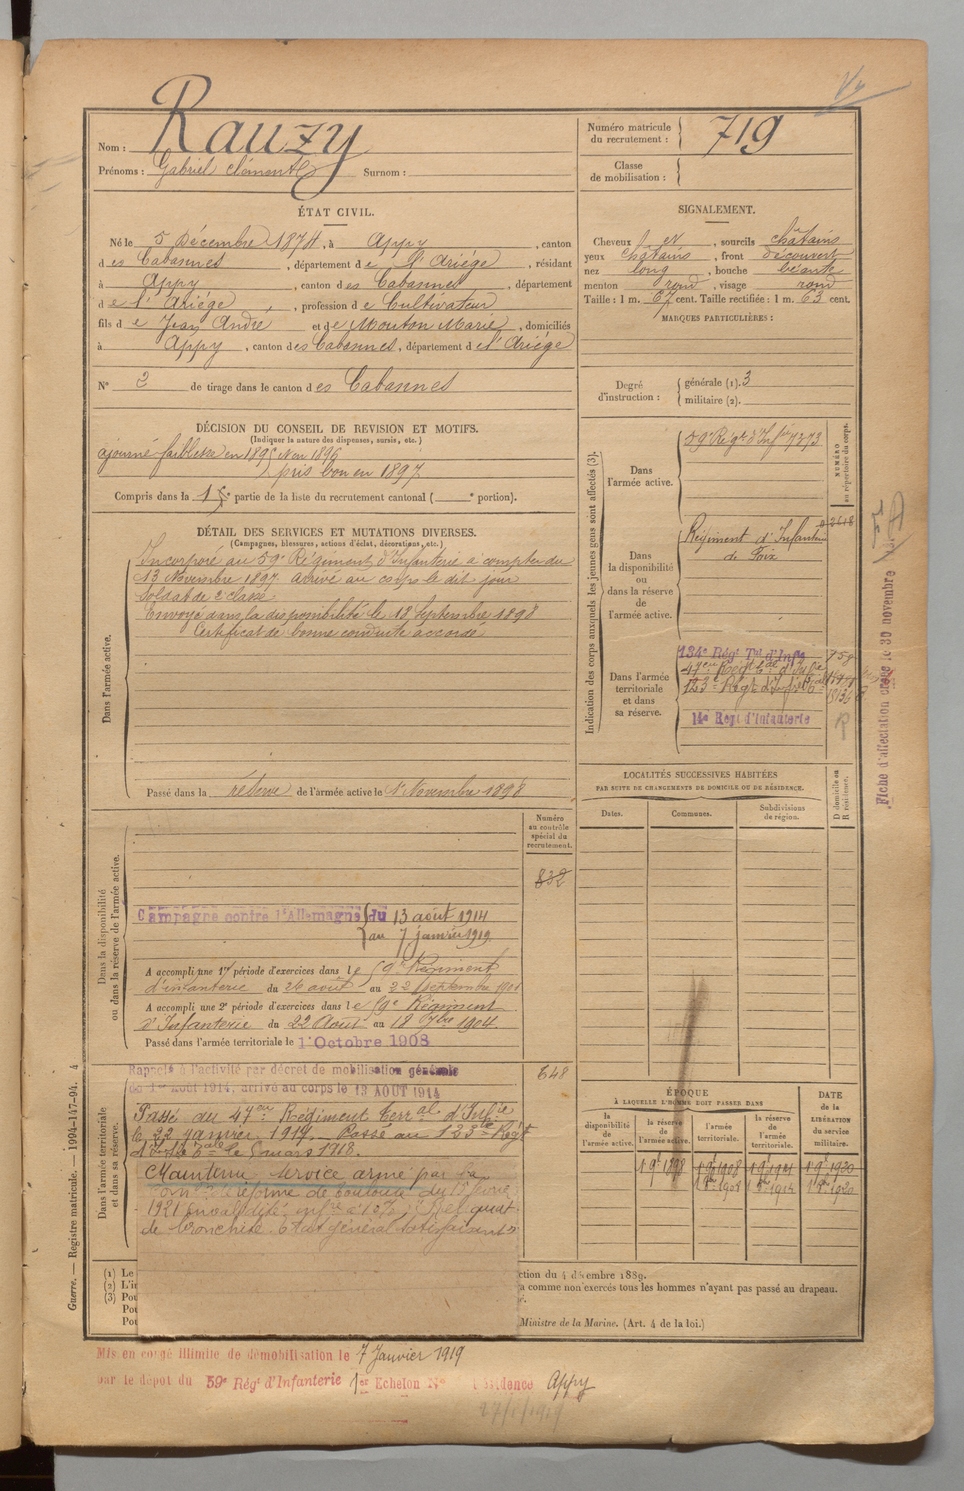 Rauzy
Nom :
Prénoms : Gabriel Clément Surnom :
Numéro matricule du recrutement : 719
Classe de mobilisation :
ÉTAT CIVIL.
Né le 5 Décembre 1874, à Appy, canton
des Cabannes, département de l'Ariége, résidant
à Appy, canton des Cabannes, département
de l'Ariége, profession de Cultivateur
fils de Jean André et de Mouton Marie, domiciliés
à Appy, canton des Cabannes, département de l'Ariége
N° 2 de tirage dans le canton des Cabannes
SIGNALEMENT.
Cheveux et, sourcils châtains
yeux châtains, front découvert
nez long, bouche béante
menton rond, visage rond
Taille : 1 m. 67 cent. Taille rectifiée : 1 m. 63 cent.
MARQUES PARTICULIÈRES :
Degré d'instruction : générale (1). 3
militaire (2).
DÉCISION DU CONSEIL DE REVISION ET MOTIFS.
(Indiquer la nature des dispenses, sursis, etc.)
ajourné faiblesse en 1895 et en 1896
pris bon en 1897
Compris dans la 1e partie de la liste du recrutement cantonal ( e portion).
DÉTAIL DES SERVICES ET MUTATIONS DIVERSES.
(Campagnes, blessures, actions d'éclat, décorations, etc.)
Dans l'armée active.
Incorporé au 59e Régiment d'Infanterie à compter du
13 Novembre 1897 arrivé au corps le dit jour
Soldat de 2e classe
Envoyé dans la disponibilité le 18 Septembre 1898
Certificat de bonne conduite accordé
Passé dans la réserve de l'armée active le 1r Novembre 1898
Indication des corps auxquels les jeunes gens sont affectés (3).
NUMÉRO au répertoire du corps.
Dans l'armée active.
59e Régt d'Infie 7273
Dans la disponibilité ou dans la réserve de l'armée active.
Régiment d'Infanterie
de Foix
Dans l'armée territoriale et dans sa réserve.
134e Régt Tal d'Infie 758
47eme Regt d'Infie
123e Régt d'Infie
14e Regt d'Infanterie
R
Fiche d'affectation close le 30 novembre
LOCALITÉS SUCCESSIVES HABITÉES
PAR SUITE DE CHANGEMENTS DE DOMICILE OU DE RÉSIDENCE.
Dates.
Communes.
Subdivisions de région.
D domicile ou R résidence.
Numéro au contrôle spécial du recrutement.
832
Dans la disponibilité ou dans la réserve de l'armée active.
Campagne contre l'Allemagne du 13 août 1914
au 7 janvier 1919
A accompli une 1re période d'exercices dans le 59e Régiment
d'infanterie du 26 août au 22 septembre 1901
A accompli une 2e période d'exercices dans le 59e Régiment
d'Infanterie du 22 Août au 18 7bre 1904
Passé dans l'armée territoriale le 1r Octobre 1908
Dans l'armée territoriale et dans sa réserve.
Rappelé à l'activité par décret de mobilisation générale
du 1er Août 1914, arrivé au corps le 13 AOUT 1914
648
Passé au 47eme Régiment Terral d'Infie
le 22 janvier 1917. Passé au 123e Régt
le 8 mars 1918.
Maintenu service armé par la
réforme de Toulouse du
1921 Invalidité infre à 10%
de bronchite. Etat général satisfaisant
ÉPOQUE
À LAQUELLE L'HOMME DOIT PASSER DANS
la disponibilité de l'armée active.
la réserve de l'armée active.
l'armée territoriale.
la réserve de l'armée territoriale.
DATE de la LIBÉRATION du service militaire.
1 9bre 1898
(1) Le
(2) L'in
(3) Pou
Pou
Pou
ction du 4 décembre 1889.
a comme non exercés tous les hommes n'ayant pas passé au drapeau.
Ministre de la Marine. (Art. 4 de la loi.)
Guerre. — Registre matricule. — 1994-147-94. 4
Mis en congé illimité de démobilisation le 7 Janvier 1919
par le dépôt du 59e Régt d'Infanterie 1er Echelon N° résidence Appy